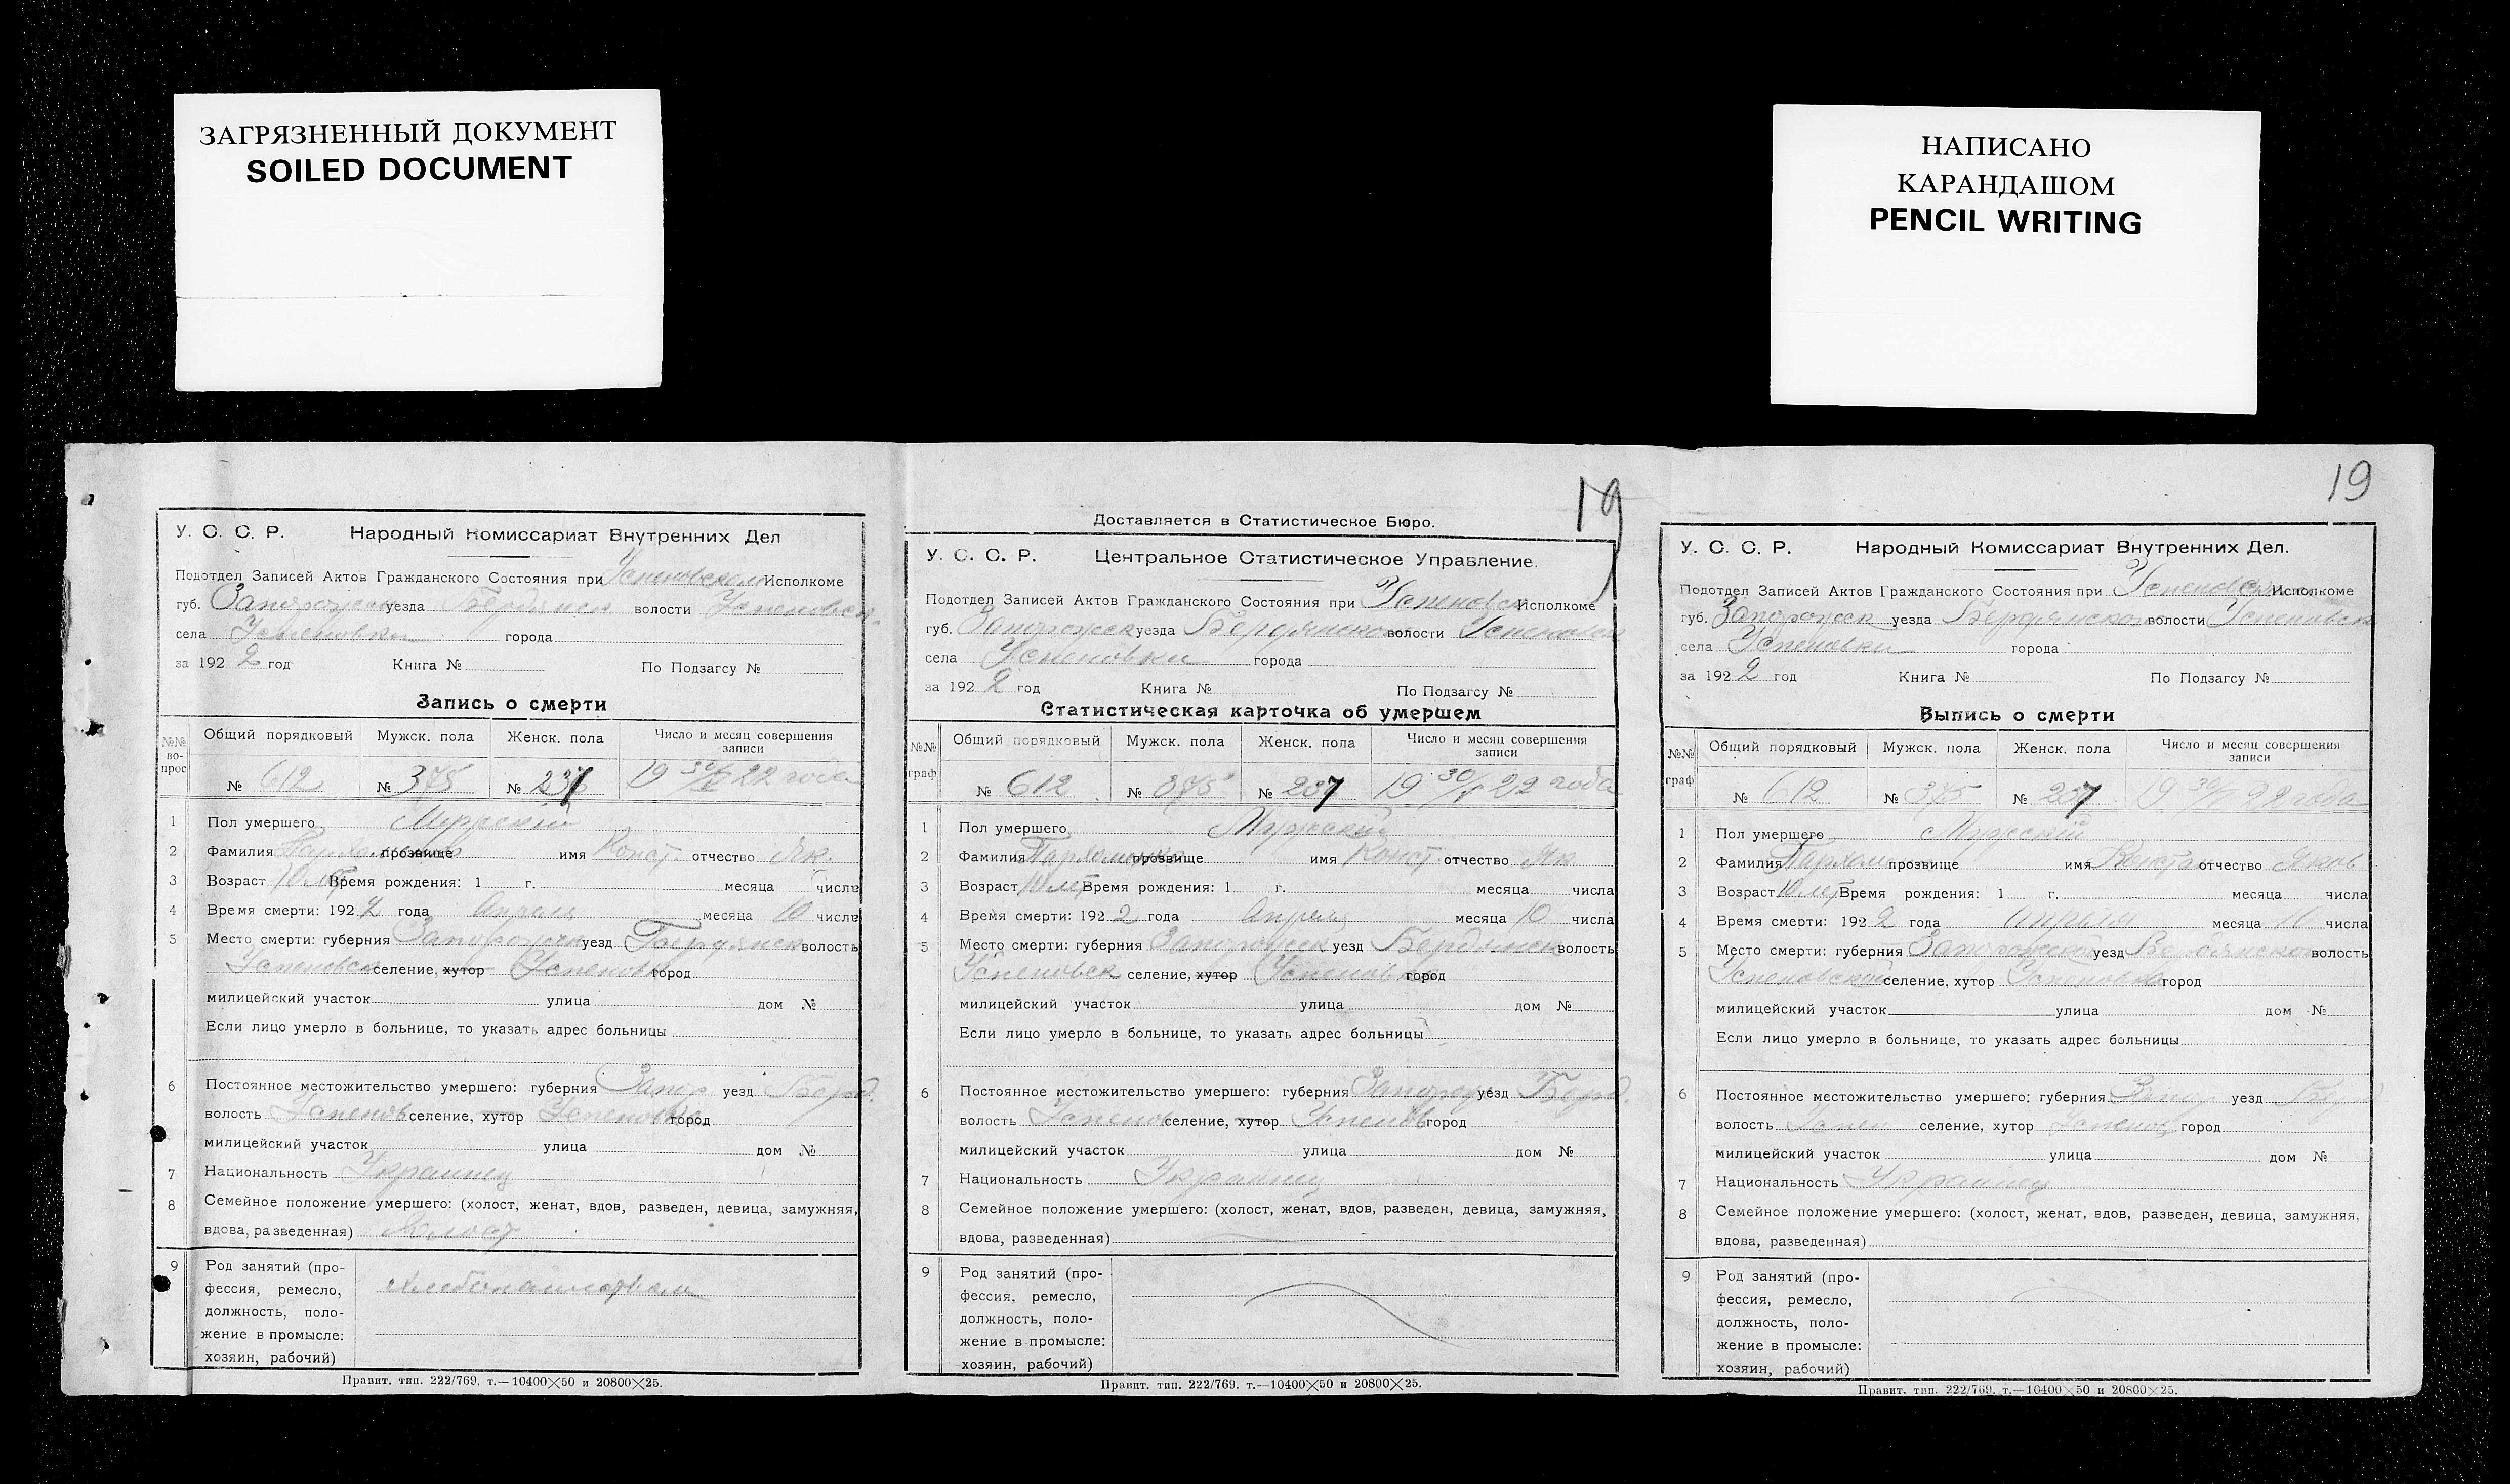 ЗАГРЯЗНЕННЫЙ ДОКУМЕНТ
SOILED DOCUMENT
НАПИСАНО
КАРАНДАШОМ
PENCIL WRITING
19
19
У. С. С. Р. Народный Комиссариат Внутренних Дел
Подотдел Записей Актов Гражданского Состояния при Успеновском Исполкоме
губ. Запорожск уезда Бердянск волости Успеновск.
села Успеновки города
за 192 2 год Книга № По Подзагсу №
Запись о смерти
№№ вопрос Общий порядковый Мужск. пола Женск. пола Число и месяц совершения записи
№ 612 № 375 № 237 19 30/V 22 года
1 Пол умершего Мужской
2 Фамилия прозвище имя Конст. отчество Як.
3 Возраст 10 лет Время рождения: 1 г. месяца числа
4 Время смерти: 192 2 года Апреля месяца 10 числа
5 Место смерти: губерния Запорожск уезд Бердянск волость
Успеновск селение, хутор Успеновка город
милицейский участок улица дом №
Если лицо умерло в больнице, то указать адрес больницы
6 Постоянное местожительство умершего: губерния Запор уезд Берд.
волость Успенов селение, хутор Успеновка город
милицейский участок улица дом №
7 Национальность Украинец
8 Семейное положение умершего: (холост, женат, вдов, разведен, девица, замужняя,
вдова, разведенная) холост
9 Род занятий (про-
фессия, ремесло, хлебопашеством
должность, поло-
жение в промысле:
хозяин, рабочий)
Правит. тип. 222/769. т.—10400×50 и 20800×25.
Доставляется в Статистическое Бюро.
У. С. С. Р. Центральное Статистическое Управление.
Подотдел Записей Актов Гражданского Состояния при Успеновск Исполкоме
губ. Запорожск уезда Бердянского волости Успеновск
села Успеновки города
за 192 2 год Книга № По Подзагсу №
Статистическая карточка об умершем
№№ граф Общий порядковый Мужск. пола Женск. пола Число и месяц совершения записи
№ 612 № 375 № 237 19 30/V 22 года
1 Пол умершего Мужский
2 Фамилия Пархоменко прозвище имя Конст. отчество Як
3 Возраст 10 лет Время рождения: 1 г. месяца числа
4 Время смерти: 192 2 года Апреля месяца 10 числа
5 Место смерти: губерния Запорожск уезд Бердянск волость
Успеновск селение, хутор Успеновка город
милицейский участок улица дом №
Если лицо умерло в больнице, то указать адрес больницы
6 Постоянное местожительство умершего: губерния Запорож уезд Берд.
волость Успенов селение, хутор Успенов город
милицейский участок улица дом №
7 Национальность Украинец
8 Семейное положение умершего: (холост, женат, вдов, разведен, девица, замужняя,
вдова, разведенная)
9 Род занятий (про-
фессия, ремесло,
должность, поло-
жение в промысле:
хозяин, рабочий)
Правит. тип. 222/769. т.—10400×50 и 20800×25.
У. С. С. Р. Народный Комиссариат Внутренних Дел.
Подотдел Записей Актов Гражданского Состояния при Успеновском Исполкоме
губ. Запорожск уезда Бердянского волости Успеновск
села Успеновки города
за 192 2 год Книга № По Подзагсу №
Выпись о смерти
№№ граф Общий порядковый Мужск. пола Женск. пола Число и месяц совершения записи
№ 612 № 375 № 237 19 30/V 22 года
1 Пол умершего Мужский
2 Фамилия прозвище имя отчество Яков
3 Возраст 10 лет Время рождения: 1 г. месяца числа
4 Время смерти: 192 2 года Апреля месяца 10 числа
5 Место смерти: губерния Запорожск уезд Бердянского волость
Успеновский селение, хутор Успеновка город
милицейский участок улица дом №
Если лицо умерло в больнице, то указать адрес больницы
6 Постоянное местожительство умершего: губерния Запор уезд
волость Успен селение, хутор Успенов город
милицейский участок улица дом №
7 Национальность Украинец
8 Семейное положение умершего: (холост, женат, вдов, разведен, девица, замужняя,
вдова, разведенная)
9 Род занятий (про-
фессия, ремесло,
должность, поло-
жение в промысле:
хозяин, рабочий)
Правит. тип. 222/769. т.—10400×50 и 20800×25.